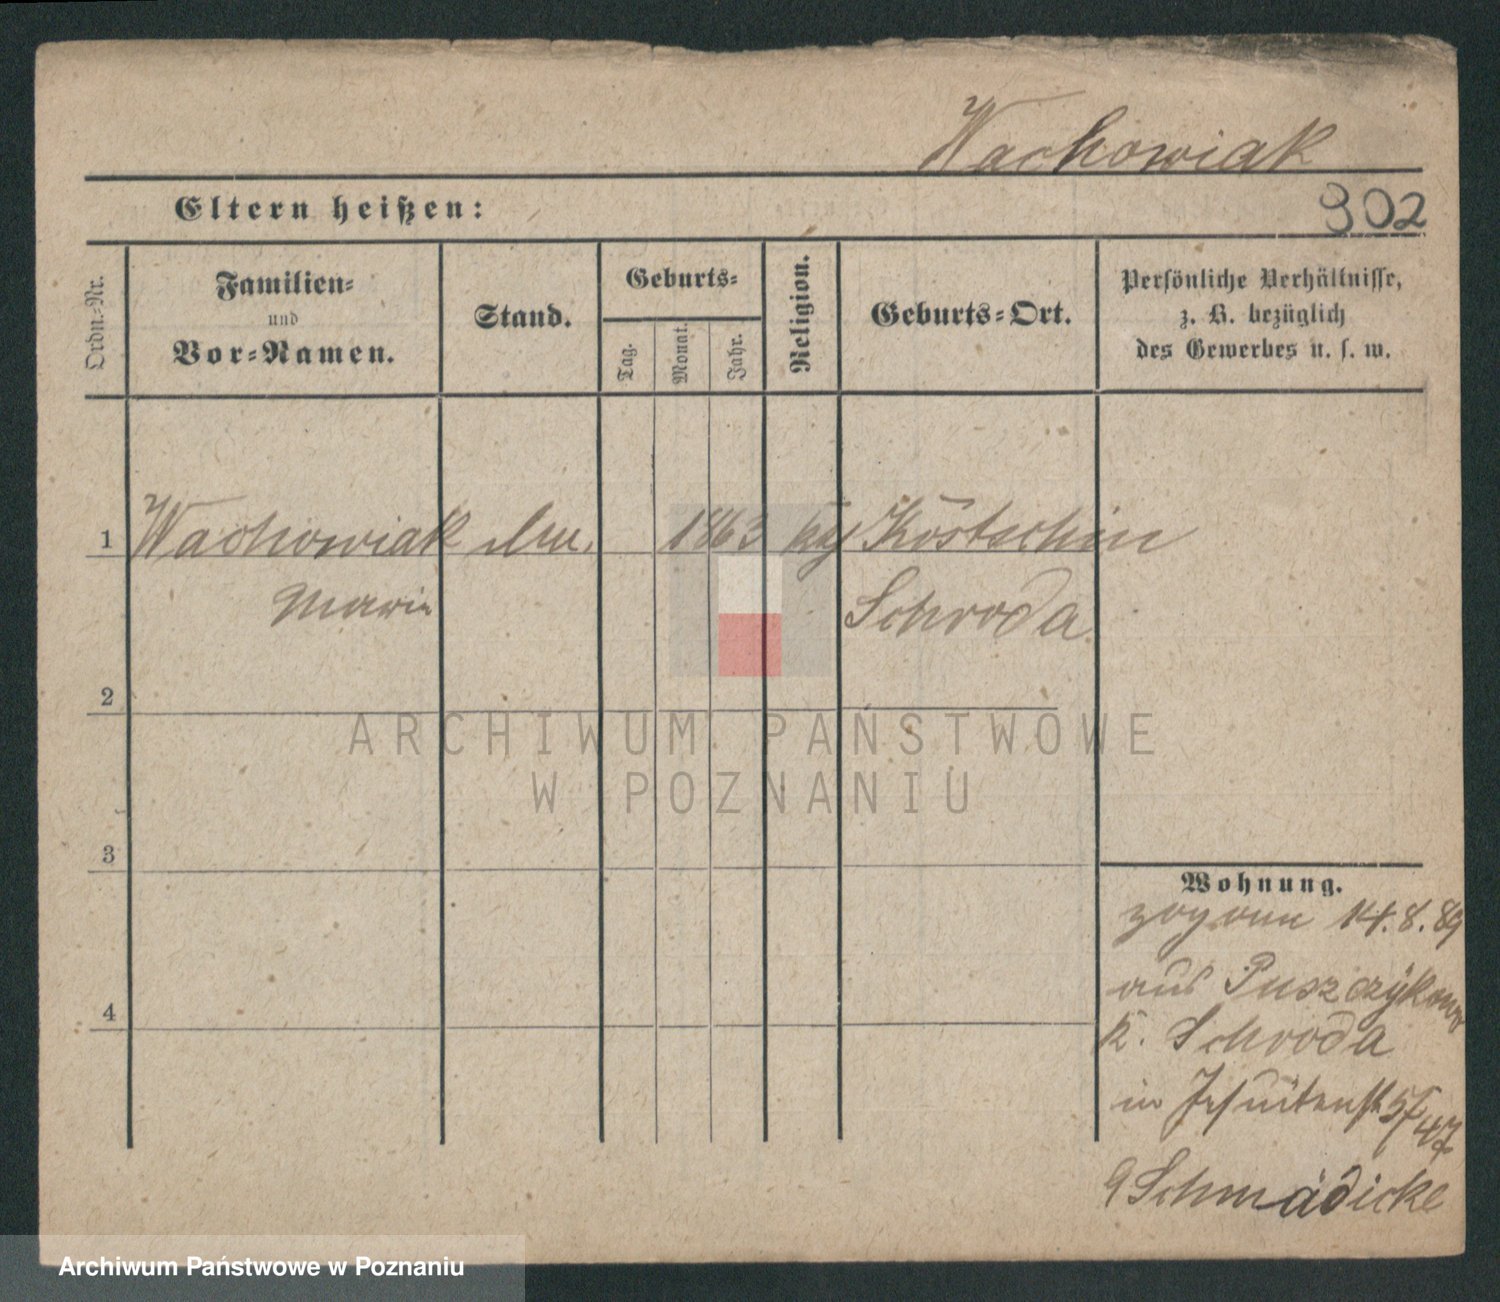 Wachowiak
Eltern heißen:
302
Ordn.-Nr.
Familien-
und
Vor-Namen.
Stand.
Geburts-
Tag.
Monat.
Jahr.
Religion.
Geburts-Ort.
Persönliche Verhältnisse,
z. B. bezüglich
des Gewerbes u. s. w.
1 Wachowiak 1863 Kostschin
Marie Schroda
2
ARCHIWUM PAŃSTWOWE
W POZNANIU
3
Wohnung.
zog am 14.8.89
aus Puszczykowo
K. Schroda
4
in Jesuitenstr 5
Schmädicke
Archiwum Państwowe w Poznaniu